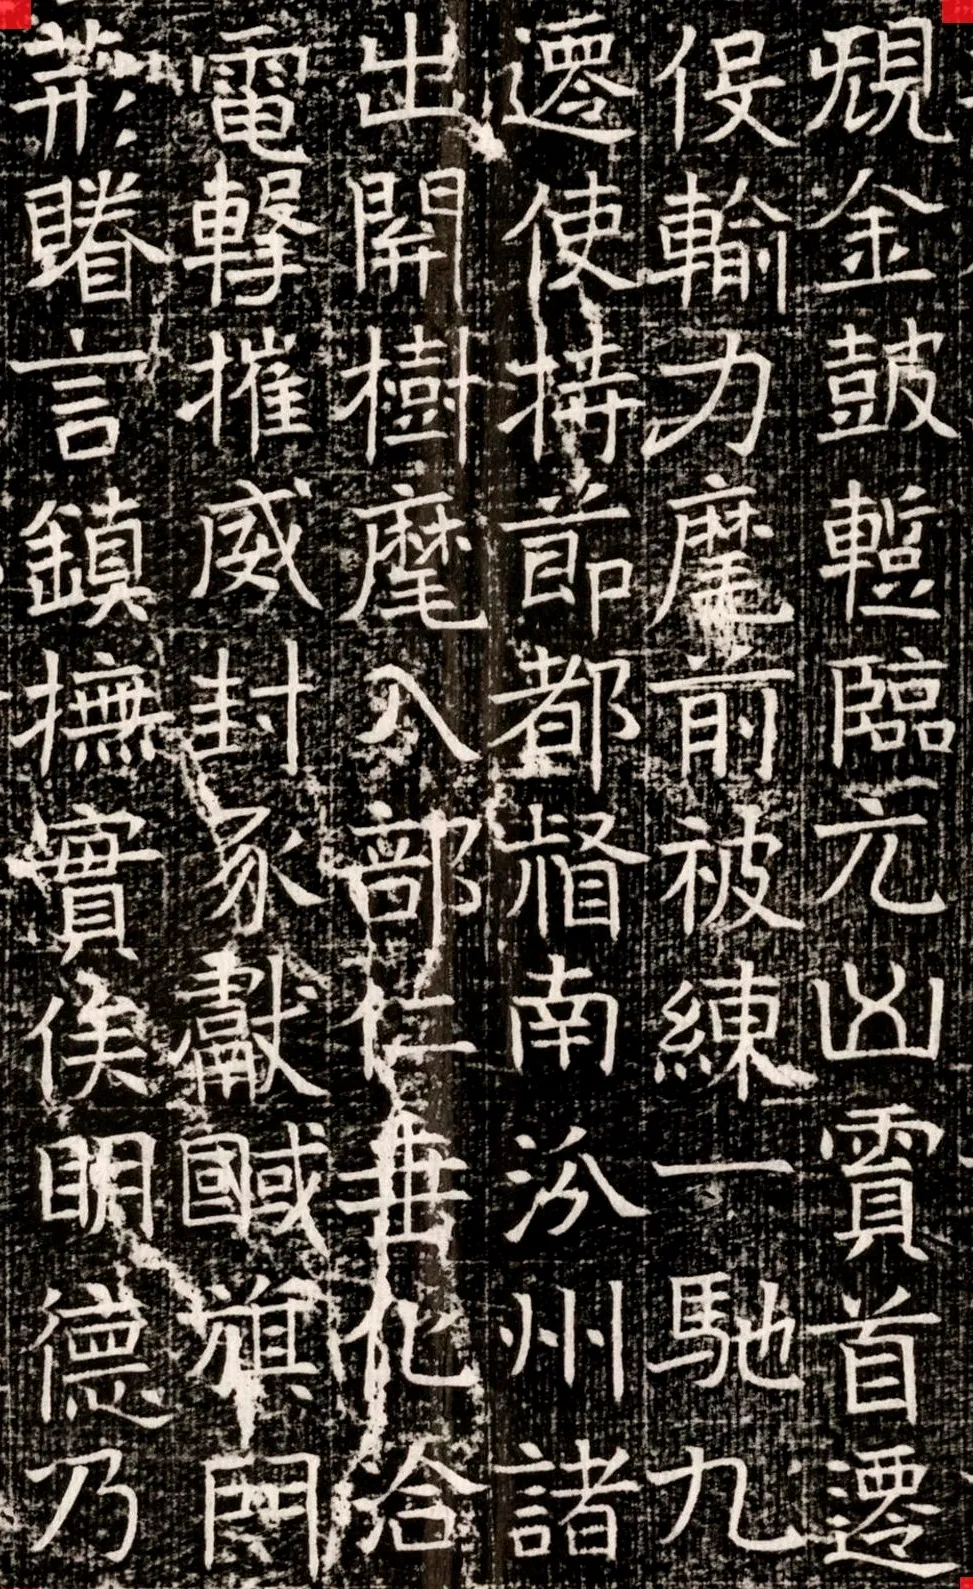 覘金鼓蹔臨元凶賈首遷
侵輸力麾前被練一馳九
遷使持節都督南汾州諸
出開樹麾入部仁垂化洽
電擊摧威封豕獻馘旗門
荊賭言鎮撫實俟明德乃